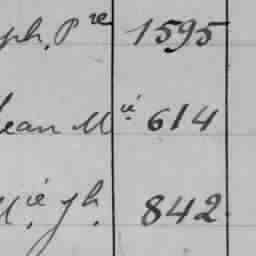 ph, Pre 1595
Jean M 614
M.ie jh. 842